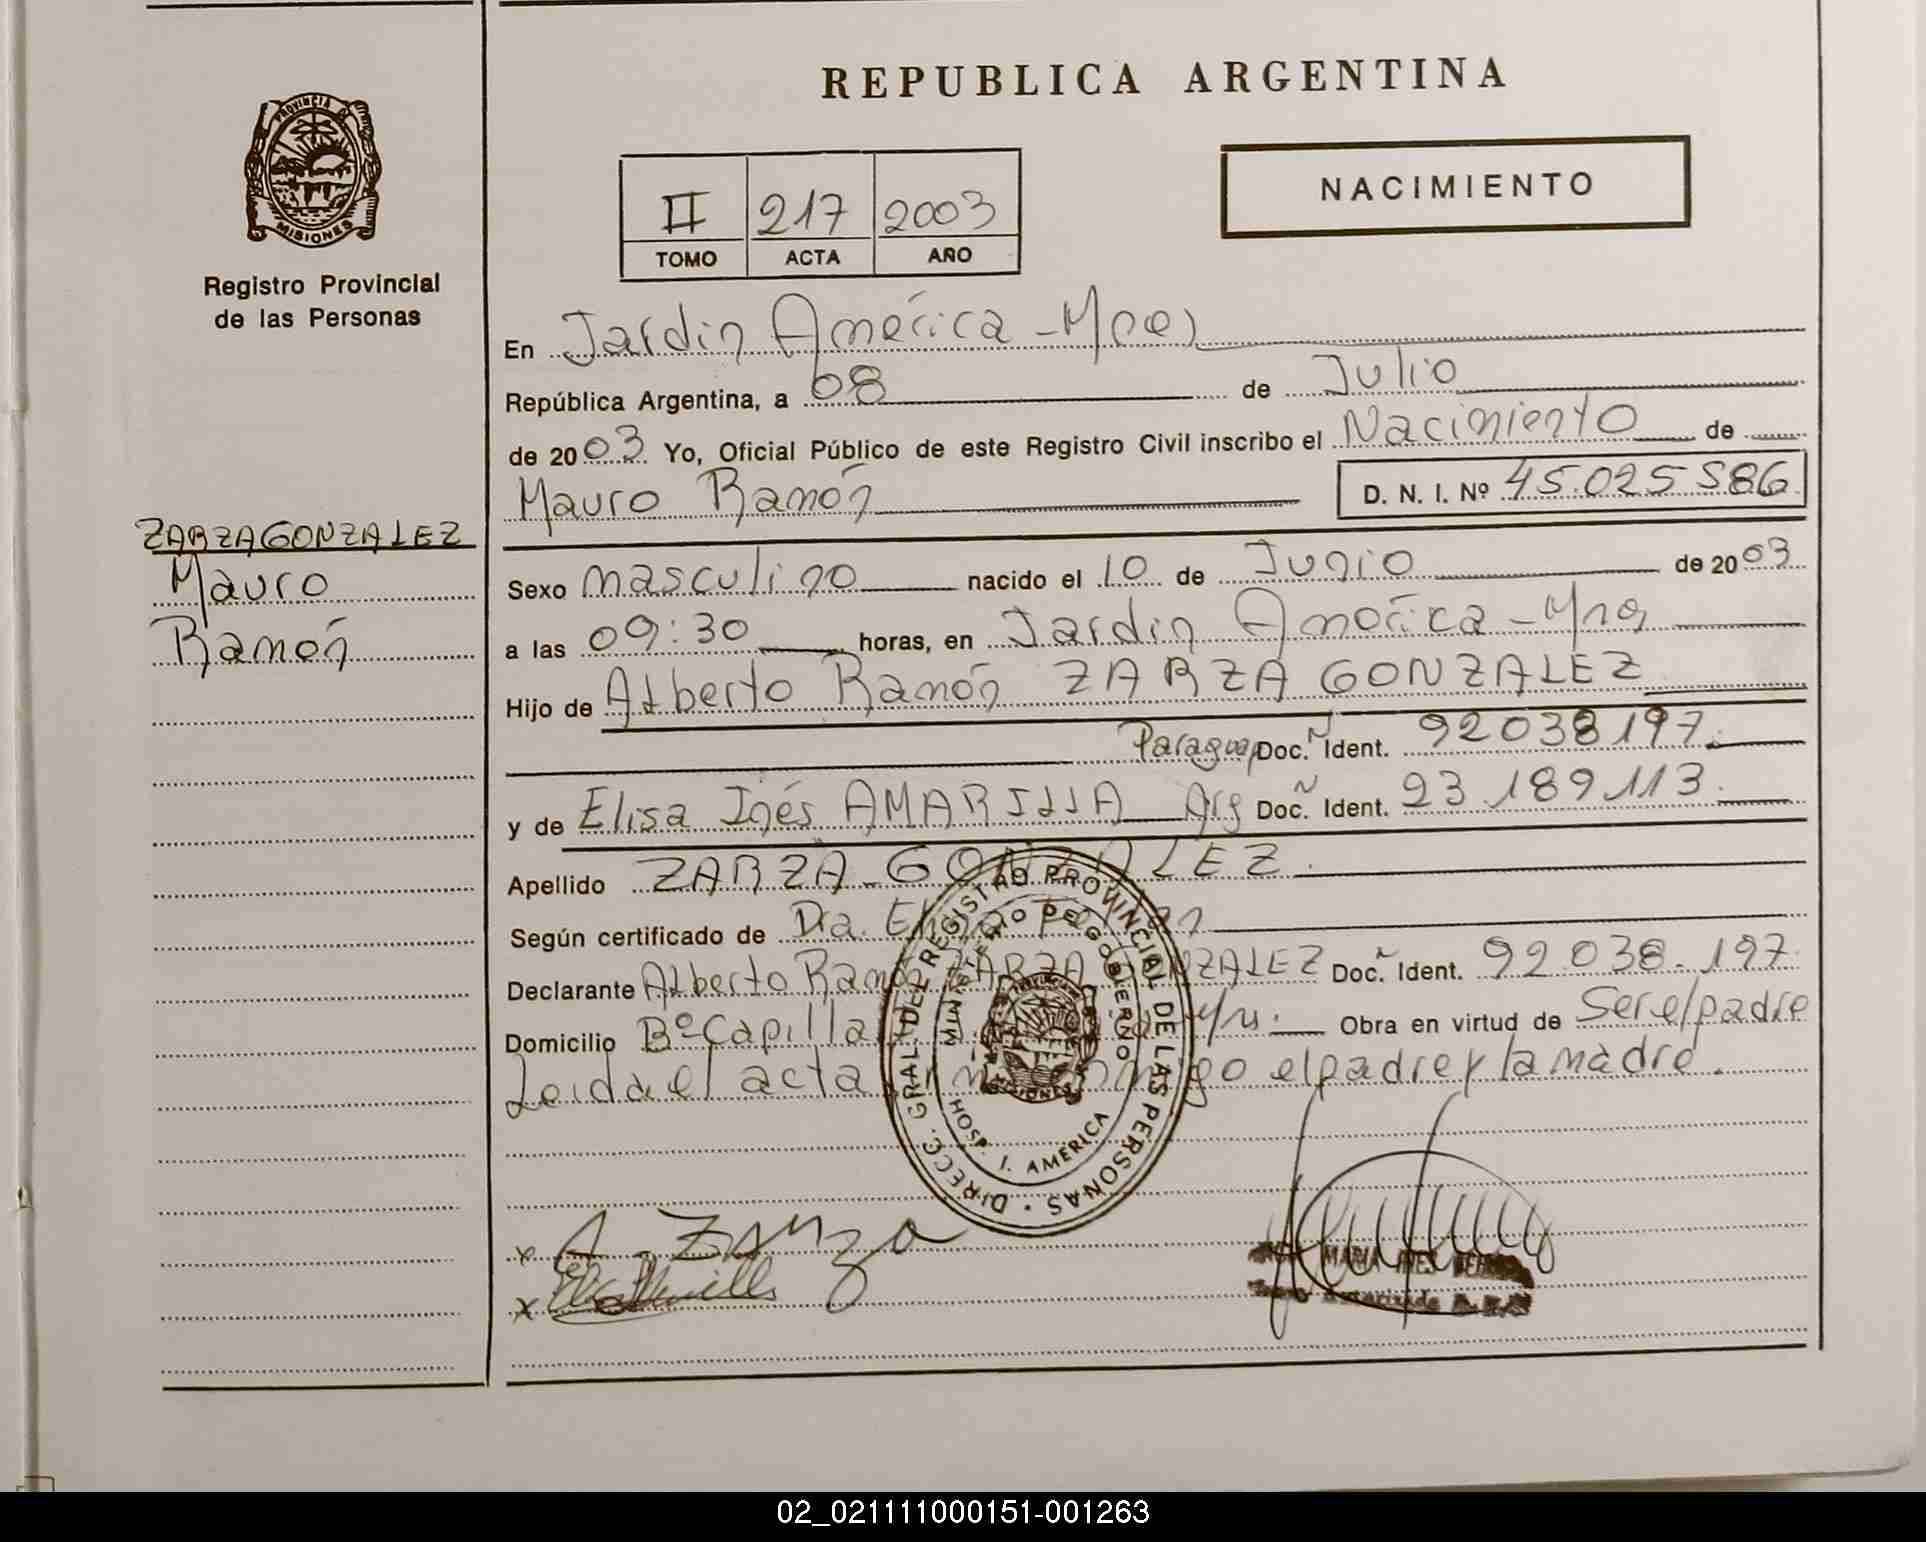 REPUBLICA ARGENTINA
PROVINCIA
MISIONES
Registro Provincial
de las Personas
NACIMIENTO
II 217 2003
TOMO ACTA AÑO
En Jardin América - Mnes
República Argentina, a 08 de Julio
de 2003 Yo, Oficial Público de este Registro Civil inscribo el Nacimiento de
Mauro Ramón D. N. I. Nº 45.025 586
ZARZA GONZALEZ
Mauro
Ramón
Sexo masculino nacido el 10 de Junio de 2003
a las 09:30 horas, en Jardin América - Mnes
Hijo de Alberto Ramón ZARZA GONZALEZ
Paraguay Doc. Ident. 92 038 197.
y de Elisa Inés AMARILLA Arg Doc. Ident. 23 189 113.
Apellido ZARZA GONZALEZ.
Según certificado de Dra.
Declarante Alberto Ramón ZARZA GONZALEZ Doc. Ident. 92.038.197
Domicilio Bº Capilla Obra en virtud de Ser el padre
Leida el acta el padre y la madre.
DIRECC. GRAL. DEL REGISTRO PROVINCIAL DE LAS PERSONAS
MINISTERIO DE GOBIERNO
HOSP. J. AMERICA
MISIONES
x A. Zarza
x
MARIA INES
02_021111000151-001263